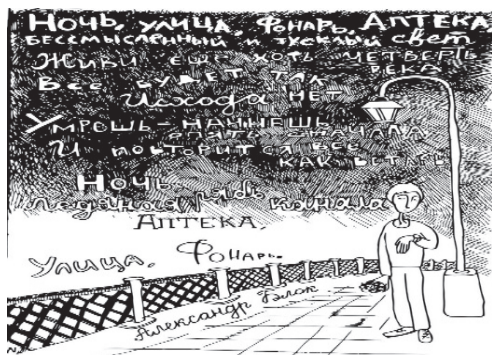 Ночь, улица, фонарь, аптека,
бессмысленный и тусклый свет
Живи ещё хоть четверть
века
Всё будет так
Исхода нет
Умрёшь - начнёшь
опять сначала
И повторится всё
как встарь
Ночь
ледяная рябь канала
Аптека,
Улица, Фонарь.
Александр Блок